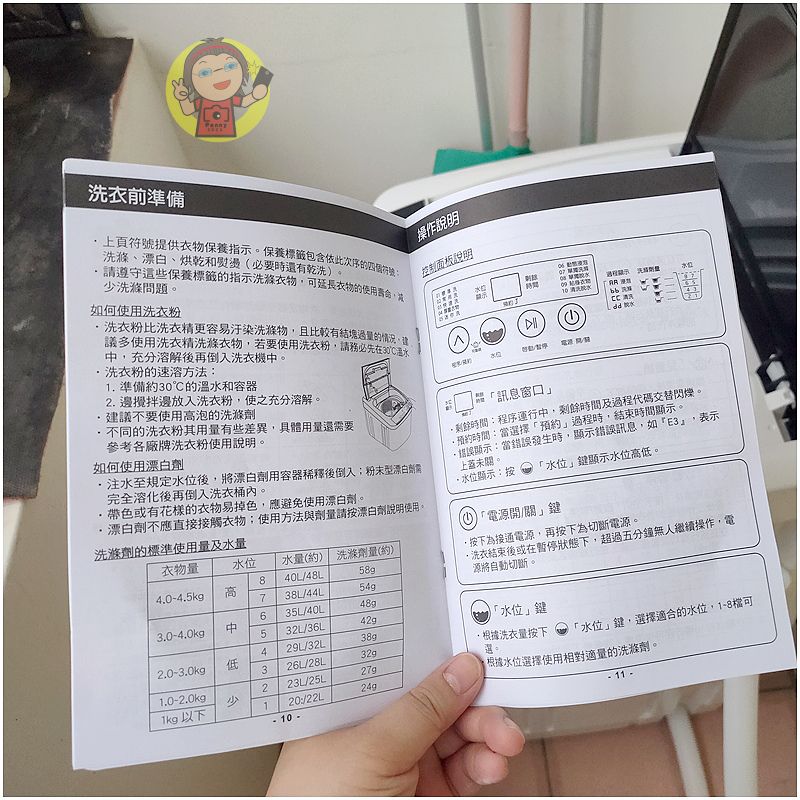 洗衣前準備
・上頁符號提供衣物保養指示。保養標籤包含依此次序的四個符號：
洗滌、漂白、烘乾和熨燙（必要時還有乾洗）。
・請遵守這些保養標籤的指示洗滌衣物，可延長衣物的使用壽命，減
少洗滌問題。
如何使用洗衣粉
・洗衣粉比洗衣精更容易于染洗滌物，且比較有結塊過量的情況，建
議多使用洗衣精洗滌衣物，若要使用洗衣粉，請務必先在30℃溫水
中，充分溶解後再倒入洗衣機中。
・洗衣粉的速溶方法：
1. 準備約30℃的溫水和容器
2. 邊攪拌邊放入洗衣粉，使之充分溶解。
・建議不要使用高泡的洗滌劑
・不同的洗衣粉其用量有些差異，具體用量還需要
參考各廠牌洗衣粉使用說明。
如何使用漂白劑
・注水至規定水位後，將漂白劑用容器稀釋後倒入；粉末型漂白劑需
完全溶化後再倒入洗衣桶內。
・帶色或有花樣的衣物易掉色，應避免使用漂白劑。
・漂白劑不應直接接觸衣物；使用方法與劑量請按漂白劑說明使用。
洗滌劑的標準使用量及水量
衣物量 水位 水量(約) 洗滌劑量(約)
4.0-4.5kg 高 8 40L/48L 58g
7 38L/44L 54g
3.0-4.0kg 中 6 35L/40L 48g
5 32L/36L 42g
2.0-3.0kg 低 4 29L/32L 38g
3 26L/28L 32g
1.0-2.0kg 少 2 23L/25L 27g
1kg 以下 1 20:/22L 24g
- 10 -
操作說明
控制面板說明
水位
顯示
預約
剩餘
時間
06 動態浸泡
07 單獨洗滌
08 單獨脫水
09 貼身衣物
10 清洗脫水
過程顯示 洗滌劑量 水位
AA 浸泡 8·7
bb 洗滌 6·5
CC 清洗 4·3
dd 脫水 2·1
程序/預約
水位
啓動/暫停
電源 開/關
水位
顯示
預約
剩餘
時間
「訊息窗口」
・剩餘時間：程序運行中，剩餘時間及過程代碼交替閃爍。
・預約時間：當選擇「預約」過程時，結束時間顯示。
・錯誤顯示：當錯誤發生時，顯示錯誤訊息，如『E3』，表示
上蓋未關。
・水位顯示：按 「水位」鍵顯示水位高低。
「電源開/關」鍵
・按下為接通電源，再按下為切斷電源。
・洗衣結束後或在暫停狀態下，超過五分鐘無人繼續操作，電
源將自動切斷。
「水位」鍵
・根據洗衣量按下 「水位」鍵，選擇適合的水位，1~8檔可
選。
・根據水位選擇使用相對適量的洗滌劑。
- 11 -